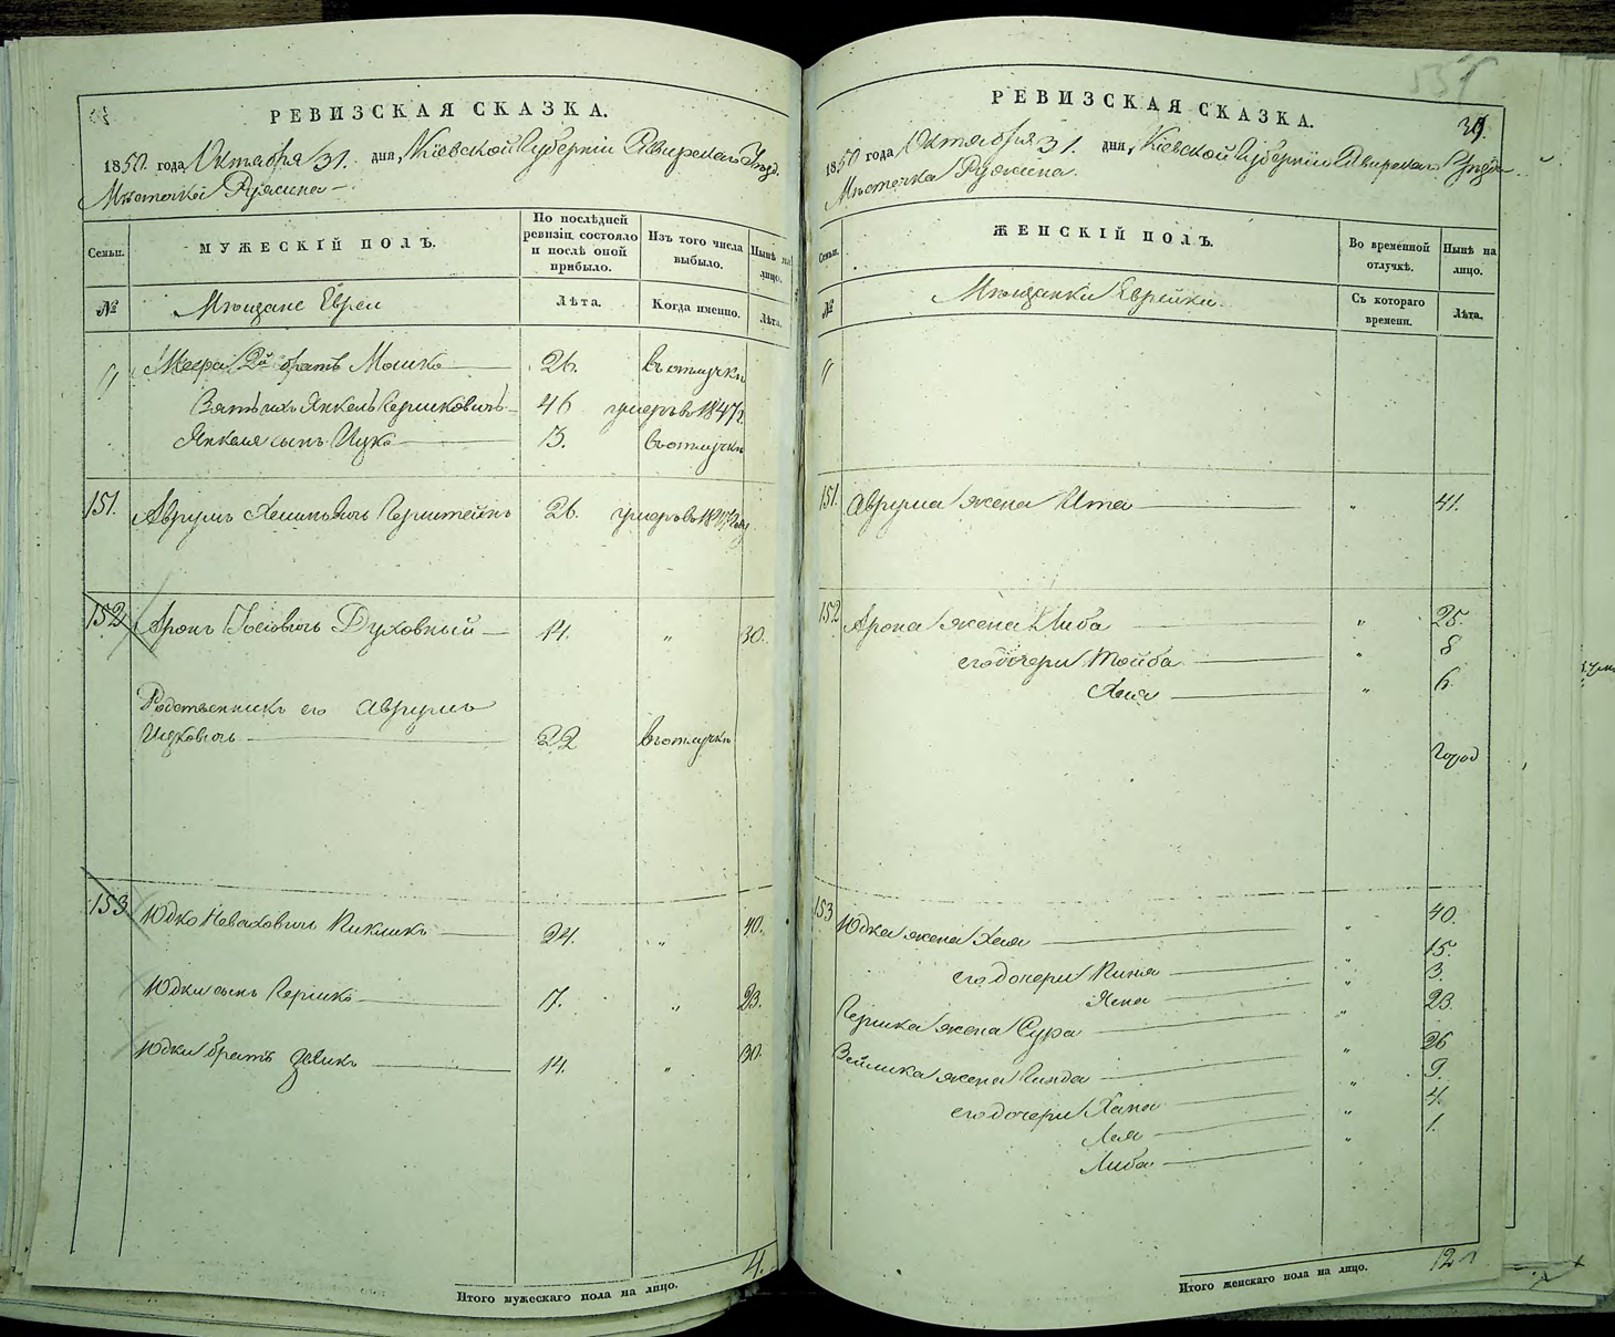 РЕВИЗСКАЯ СКАЗКА.
1850 года Октября 31. дня, Кіевской Губерніи Сквирскаго Уѣзд.
Мѣстечка Ружина
Семьи.
МУЖЕСКІЙ ПОЛЪ.
По послѣдней ревизіи состояло и послѣ оной прибыло.
Изъ того числа выбыло.
Нынѣ на лицо.
№
Мѣщане Евреи
Лѣта.
Когда именно.
Лѣта.
" Меера 2й братъ Мошко 26. въ отлучкѣ
Зять ихъ Янкель Гершковичь 46 умеръ въ 1847 г.
Янкеля сынъ Ицко 13. въ отлучкѣ
151. Аврумъ Герштейнъ 26. умеръ въ 1847 году
152 Аронъ Іосіовичь Духовный 14. " 30.
Родственникъ его Аврумъ
Ицковичь 22 въ отлучкѣ
153 Юдко Неваховичь 24. " 40.
Юдки сынъ Гершко 17. " 23.
Юдки братъ Зейликъ 14. " 30.
Итого мужескаго пола на лицо. 4.
РЕВИЗСКАЯ СКАЗКА.
1850 года Октября 31. дня, Кіевской Губерніи Сквирскаго Уѣзда
Мѣстечка Ружина.
Семьи.
ЖЕНСКІЙ ПОЛЪ.
Во временной отлучкѣ.
Нынѣ на лицо.
№
Мѣщанки Еврейки
Съ котораго времени.
Лѣта.
"
151. Аврума жена Ита " 41.
152 Арона жена Либа " 25.
его дочери Тойба " 8
Хая " 6.
153 Юдка жена Хая " 40.
его дочери " 15.
" 3.
Гершка жена Сура " 23.
Зейлика жена " 26
его дочери Хана " 9.
Лея " 4.
Либа " 1.
Итого женскаго пола на лицо. 12